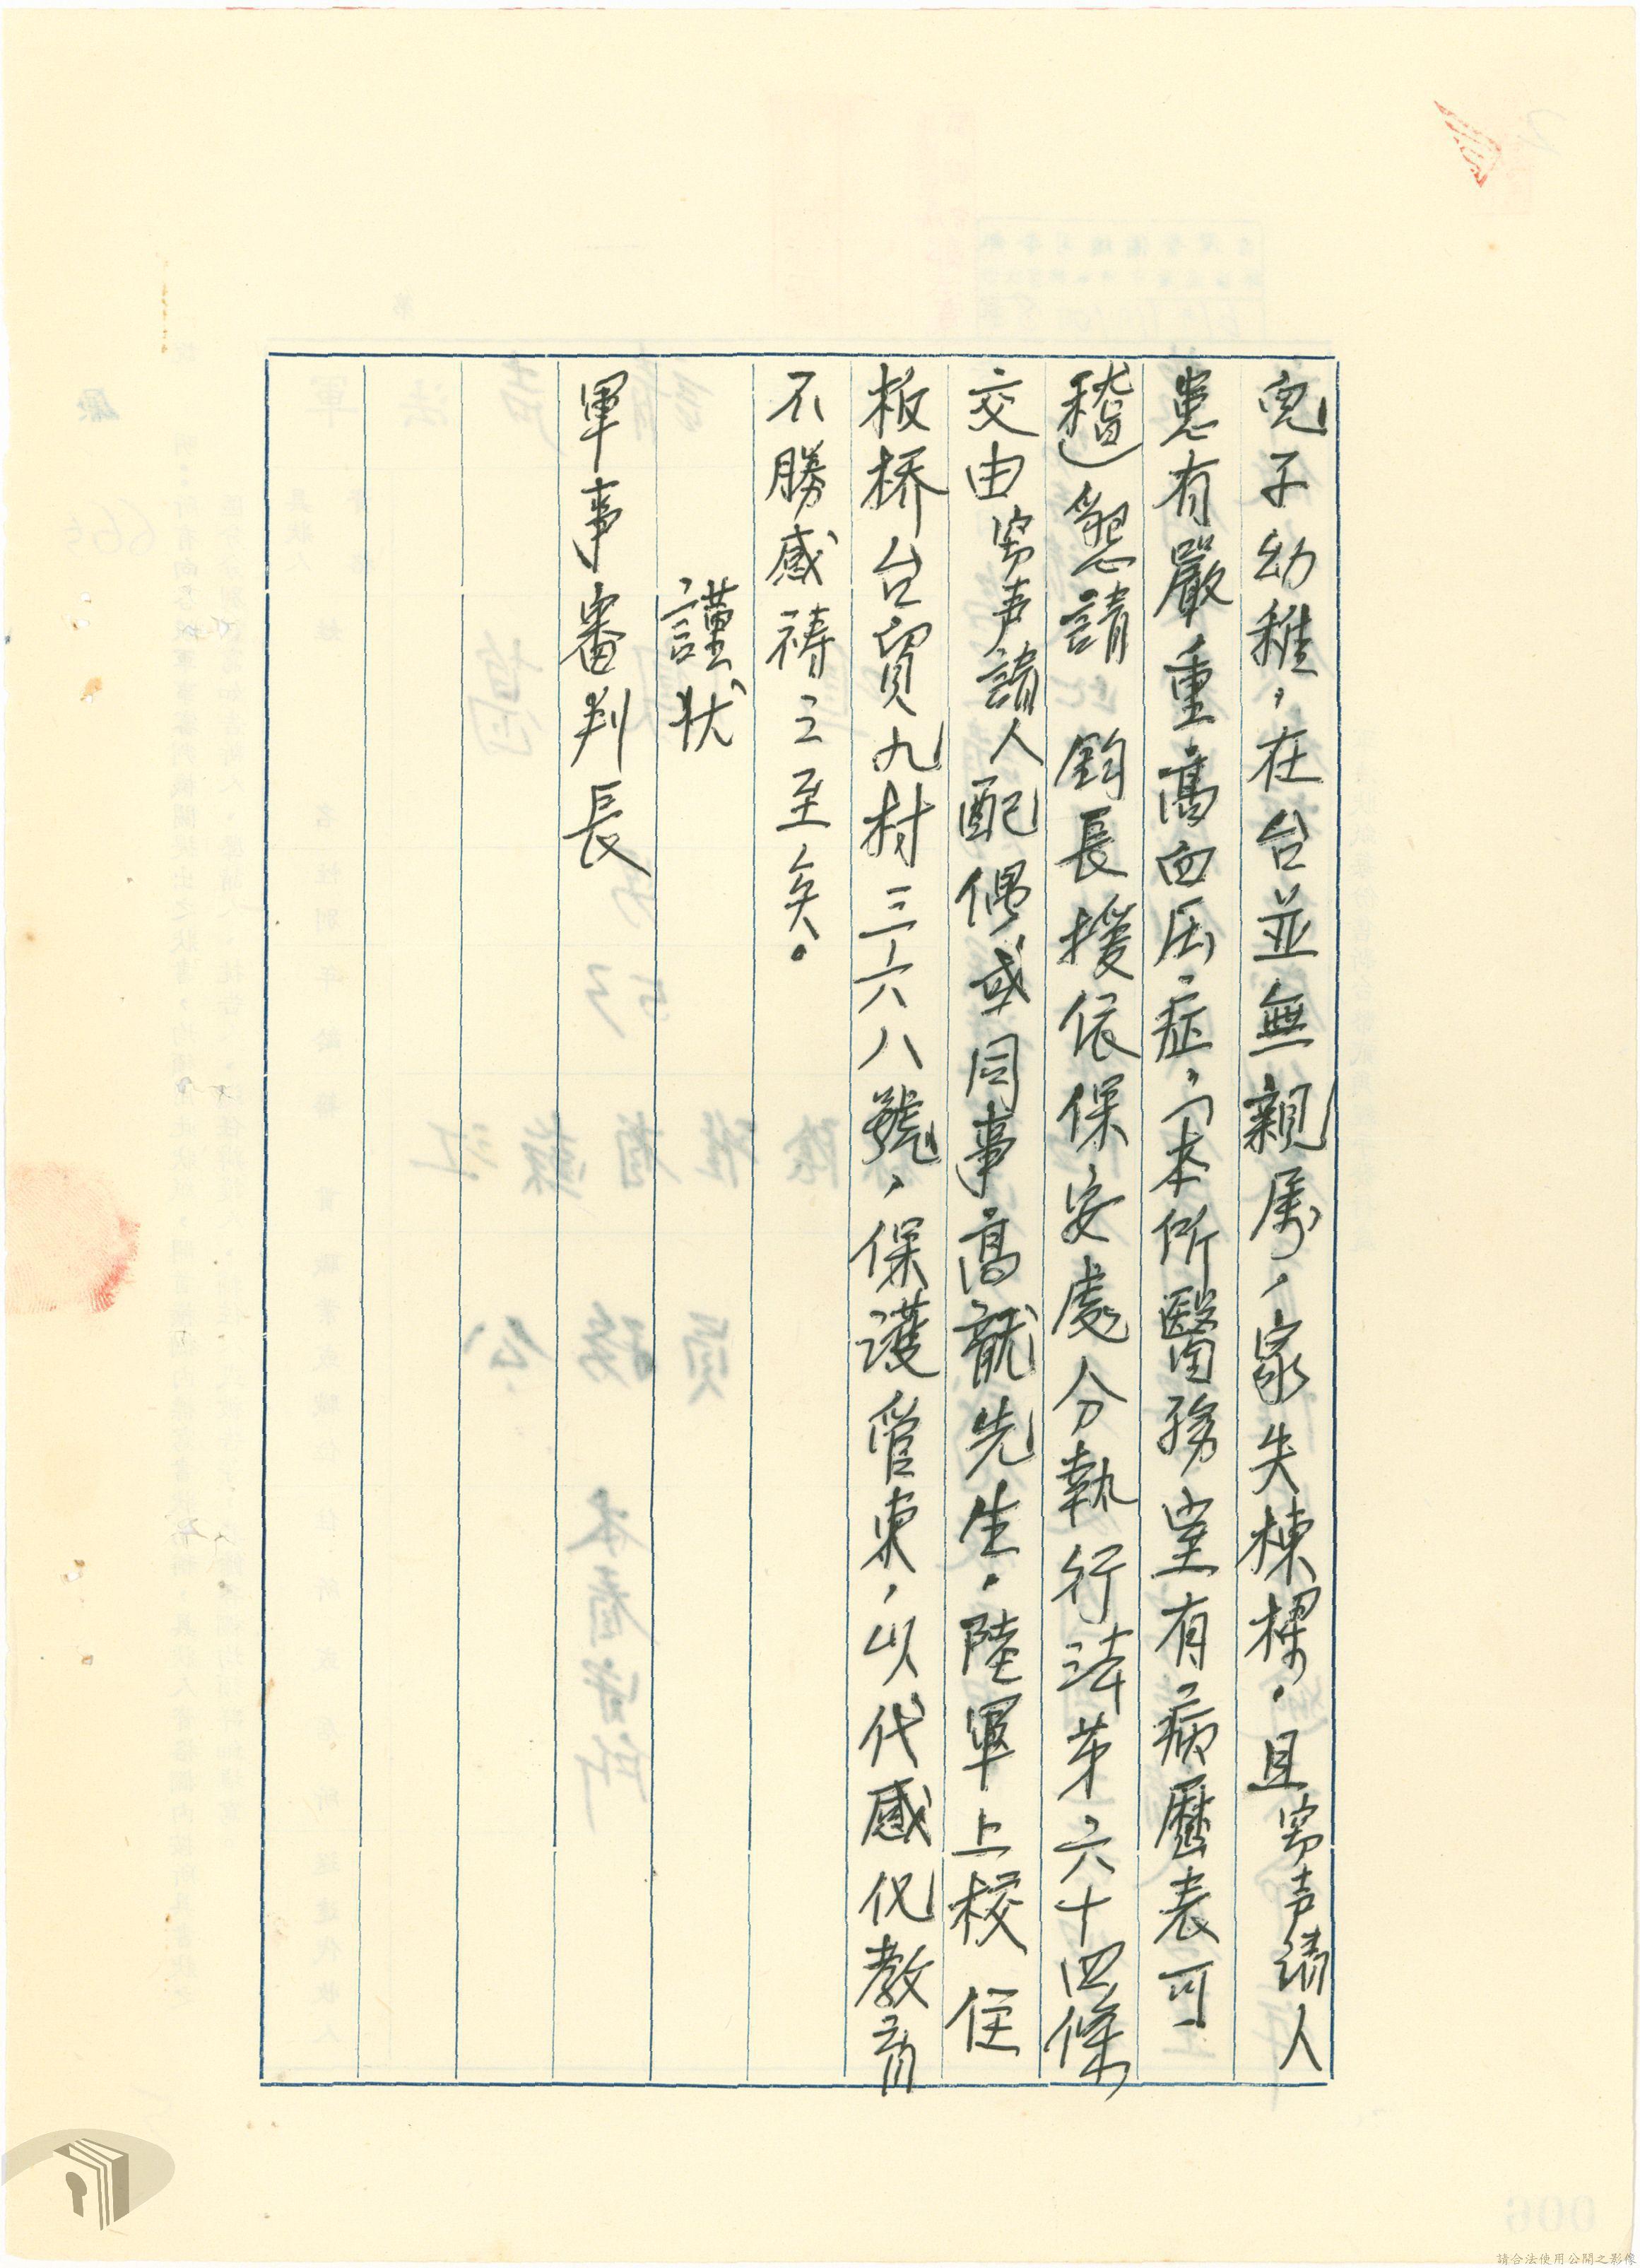 兒子幼稚，在台並無親属，家失棟樑。且寃声請人
患有嚴重高血压症，（本所醫務室有病歷表可
稽）懇請 鈞長援依保安處分執行法第六十四條
交由寃声請人配偶或同事高龍先生。陸軍上校 住
板桥台貿九村三六八號，保護管束，以代感化教育
不勝感禱之至矣。
謹狀
軍事審判長
請合法使用公開之影像